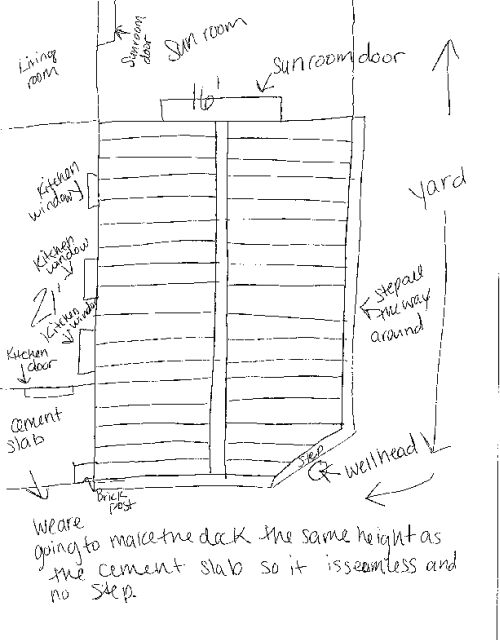 Living
room
Sunroom
door
Sun room
Sunroom door
16'
Kitchen
window
Kitchen
window
21'
Kitchen
window
Kitchen
door
Cement
slab
Yard
Step all
the way
around
Step
Wellhead
Brick
post
We are
going to make the deck the same height as
the cement slab so it is seamless and
no step.